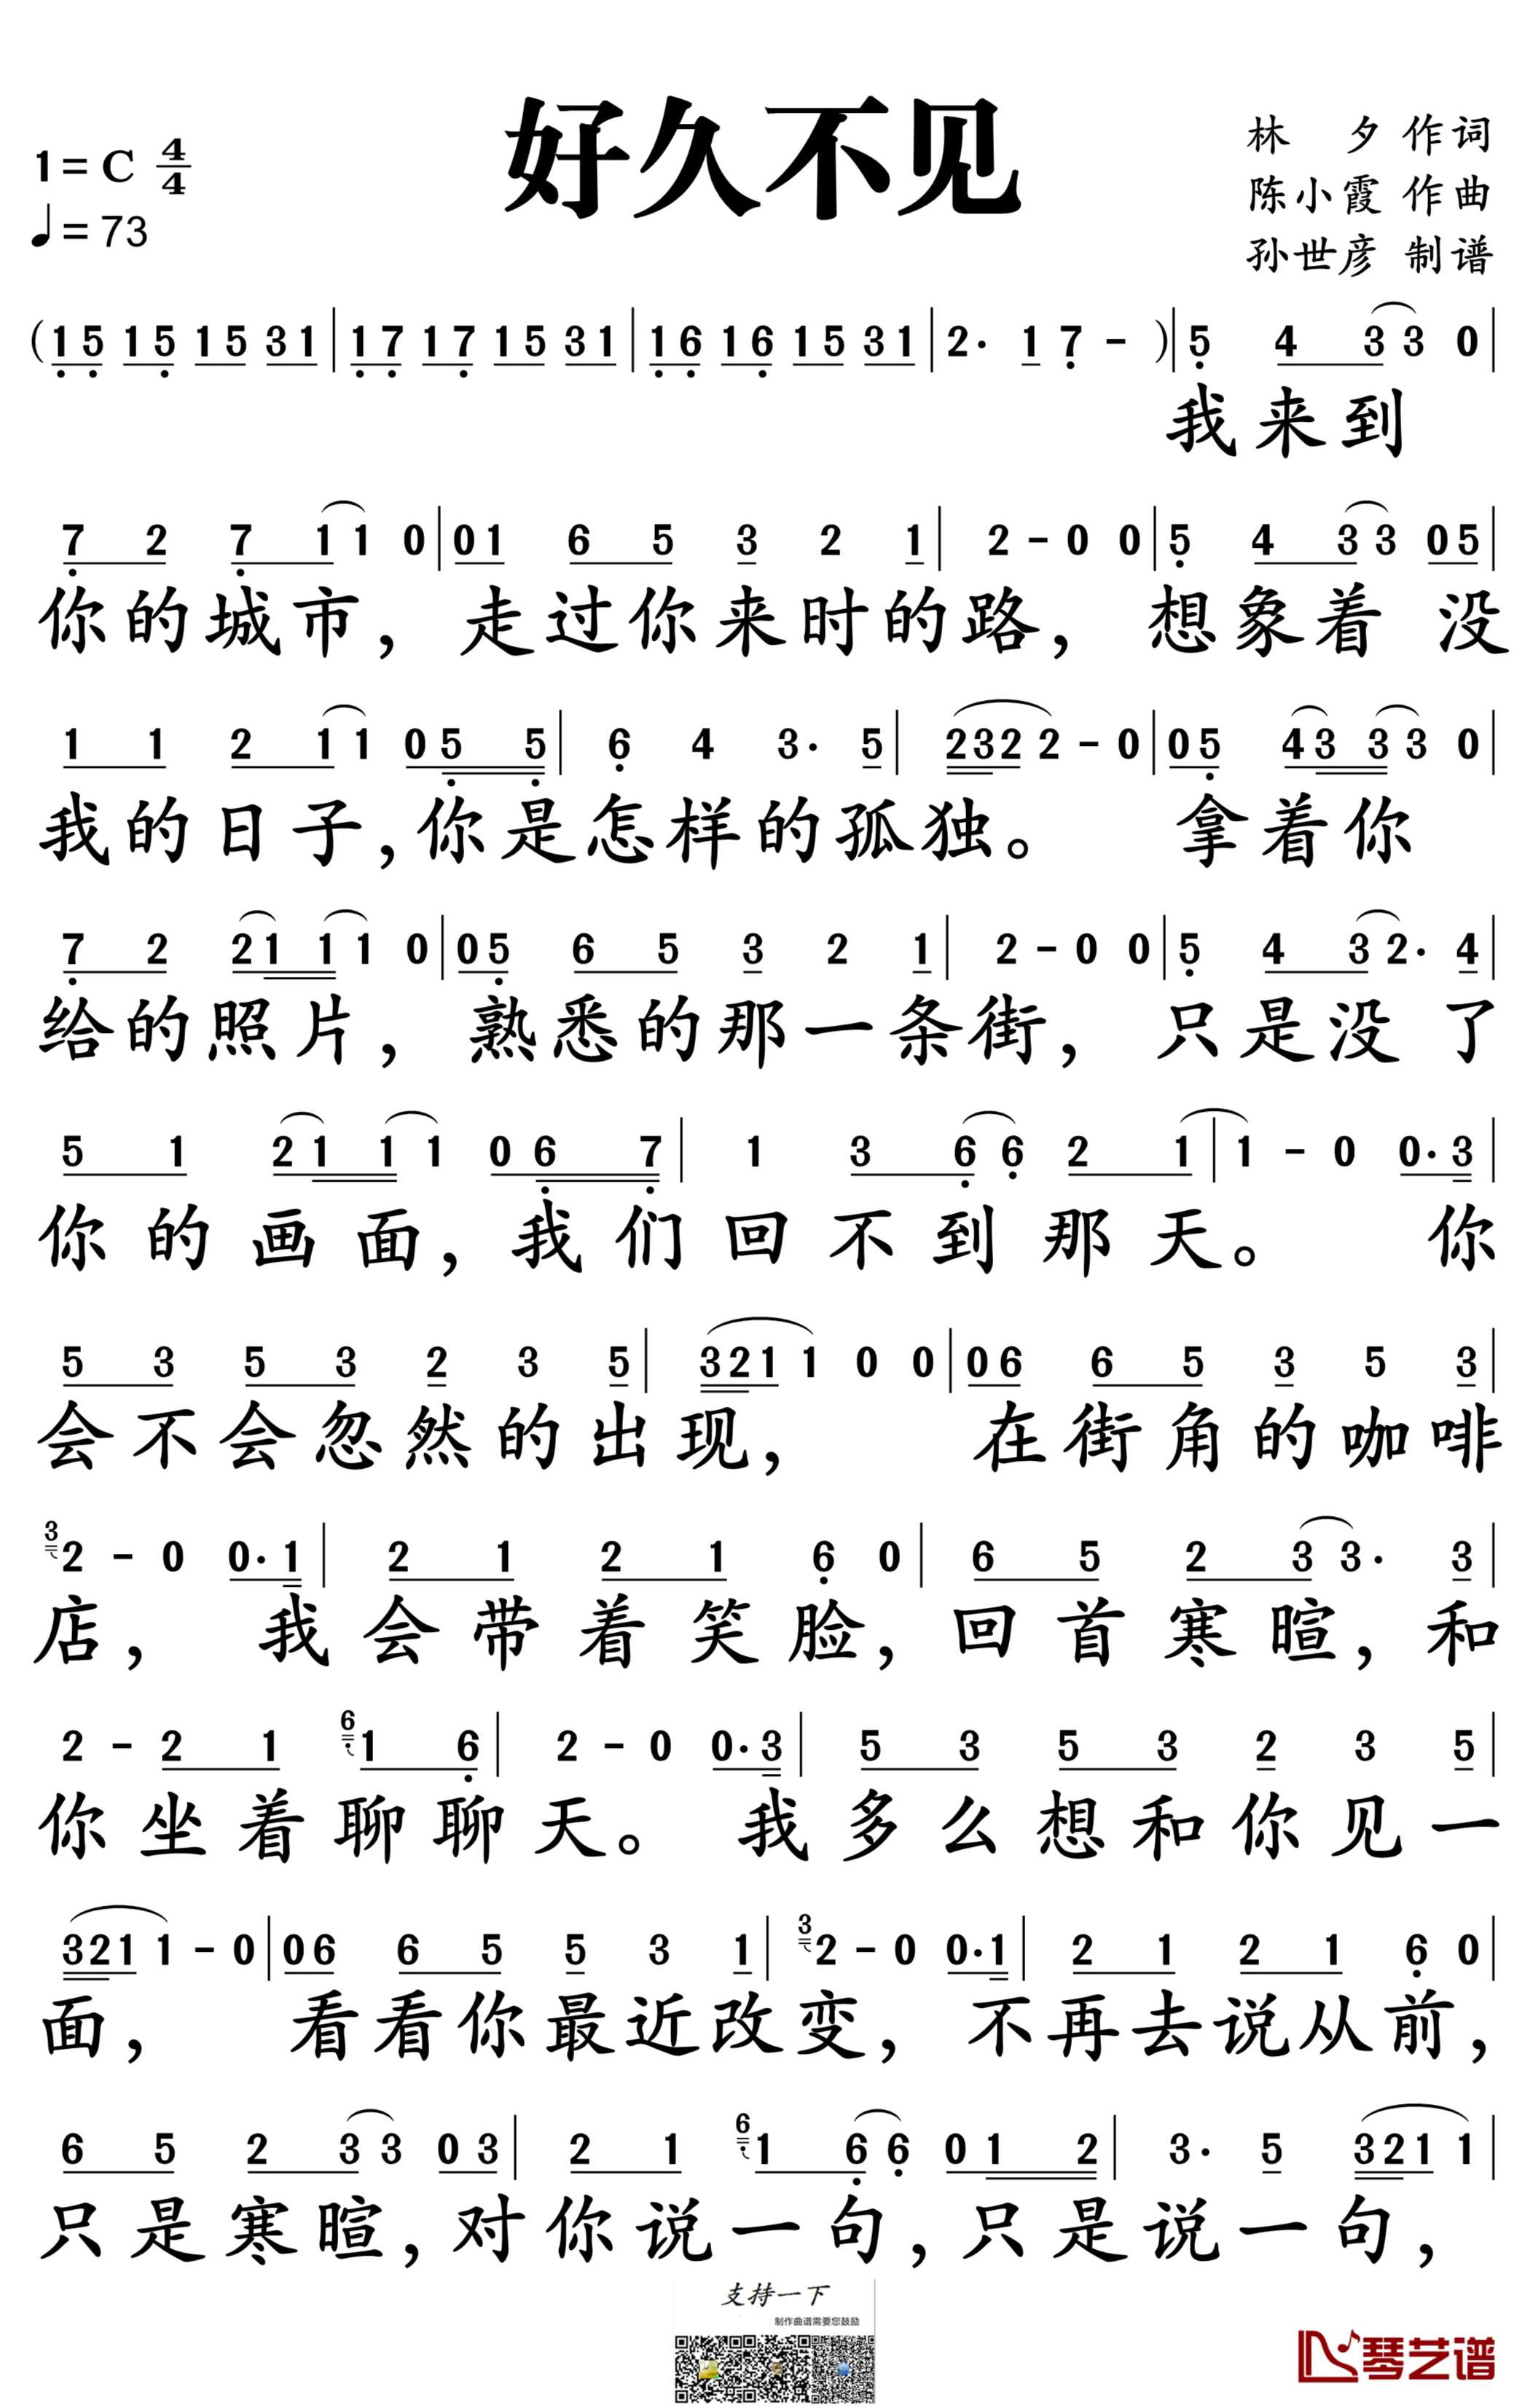 好久不见
1= C 4/4
♩= 73
林 夕 作词
陈小霞 作曲
孙世彦 制谱
(1̣5̣ 15̣ 15 31 | 1̣7̣ 17̣ 15 31 | 1̣6̣ 16̣ 15 31 | 2· 1 7̣ - )| 5̣ 4 33 0 |
我来到
7̣ 2 7̣ 11 0 | 01 6 5 3 2 1 | 2 - 0 0 | 5̣ 4 33 05 |
你的城市，走过你来时的路，想象着 没
1 1 2 11 05̣ 5̣ | 6̣ 4 3· 5 | 2322 - 0 | 05̣ 43 33 0 |
我的日子，你是怎样的孤独。 拿着你
7̣ 2 21 11 0 | 05̣ 6 5 3 2 1 | 2 - 0 0 | 5̣ 4 32· 4 |
给的照片，熟悉的那一条街，只是没了
5 1 21 11 06̣ 7̣ | 1 3 6̣6̣ 2 1 | 1 - 0 0·3 |
你的画面，我们回不到那天。 你
5 3 5 3 2 3 5 | 3211 0 0 | 06 6 5 3 5 3 |
会不会忽然的出现， 在街角的咖啡
3 2 - 0 0·1 | 2 1 2 1 6̣ 0 | 6 5 2 33· 3 |
店， 我会带着笑脸，回首寒暄，和
2 - 2 1 6̣ 1 6̣ | 2 - 0 0·3 | 5 3 5 3 2 3 5 |
你坐着聊聊天。 我多么想和你见一
3211 - 0 | 06 6 5 5 3 1 | 3 2 - 0 0·1 | 2 1 2 1 6̣ 0 |
面， 看看你最近改变，不再去说从前，
6 5 2 33 03 | 2 1 6̣ 1 6̣6̣ 01 2 | 3· 5 3211 |
只是寒暄，对你说一句，只是说一句，
支持一下
制作曲谱需要您鼓励
琴艺谱